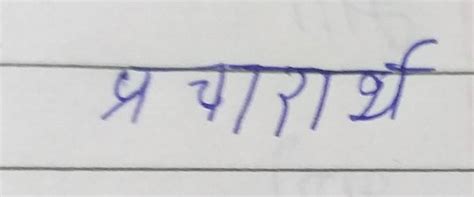 प्रचारार्थ